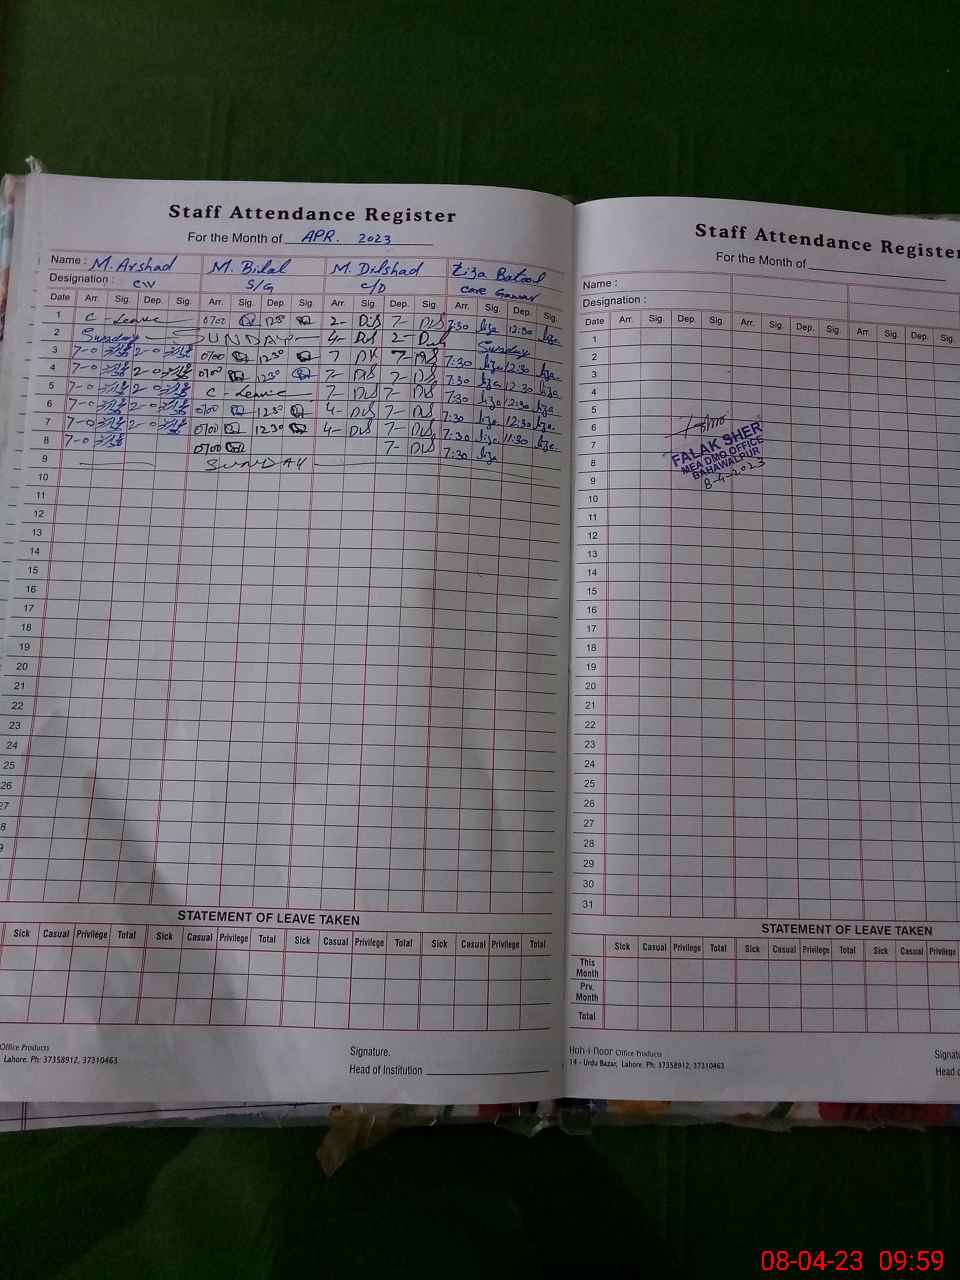 Staff Attendance Register
For the Month of APR. 2023
Name : M. Arshad M. Bilal M. Dilshad Liza Batool
Designation : CW S/G C/D Care Gawar
Date Arr. Sig. Dep. Sig. Arr. Sig. Dep. Sig. Arr. Sig. Dep. Sig. Arr. Sig. Dep. Sig.
1 C-Leave 0700 1230 2- DS 7- DS 7:30 liza 12:30 liza
2 Sunday SUNDAY 4- DS 2- DS Sunday
3 7-0 2-0 0700 1230 7 DS 7- DS 7:30 liza 12:30 liza
4 7-0 2-0 0700 1230 7- DS 7- DS 7:30 liza 12:30 liza
5 7-0 2-0 C-Leave 7- DS 7- DS 7:30 liza 12:30 liza
6 7-0 2-0 0700 1230 4- DS 7- DS 7:30 liza 12:30 liza
7 7-0 2-0 0700 1230 4- DS 7- DS 7:30 liza 11:30 liza
8 7-0 0700 7- DS 7:30 liza
9 SUNDAY
10
11
12
13
14
15
16
17
18
19
20
21
22
23
24
25
26
27
8
9
STATEMENT OF LEAVE TAKEN
Sick Casual Privilege Total Sick Casual Privilege Total Sick Casual Privilege Total Sick Casual Privilege Total
Office Products
Lahore. Ph: 37358912, 37310463
Signature.
Head of Institution
Staff Attendance Register
For the Month of
Name :
Designation :
Date Arr. Sig. Dep. Sig. Arr. Sig. Dep. Sig. Arr. Sig. Dep. Sig.
1
2
3
4
5
6
7
8
9
10
11
12
13
14
15
16
17
18
19
20
21
22
23
24
25
26
27
28
29
30
31
FALAK SHER
MEA DMO OFFICE
BAHAWALPUR
8-4-2023
STATEMENT OF LEAVE TAKEN
Sick Casual Privilege Total Sick Casual Privilege Total Sick Casual Privilege
This Month
Prv. Month
Total
Koh-i-noor Office Products
14 - Urdu Bazar, Lahore. Ph: 37358912, 37310463
Signat
Head o
08-04-23 09:59